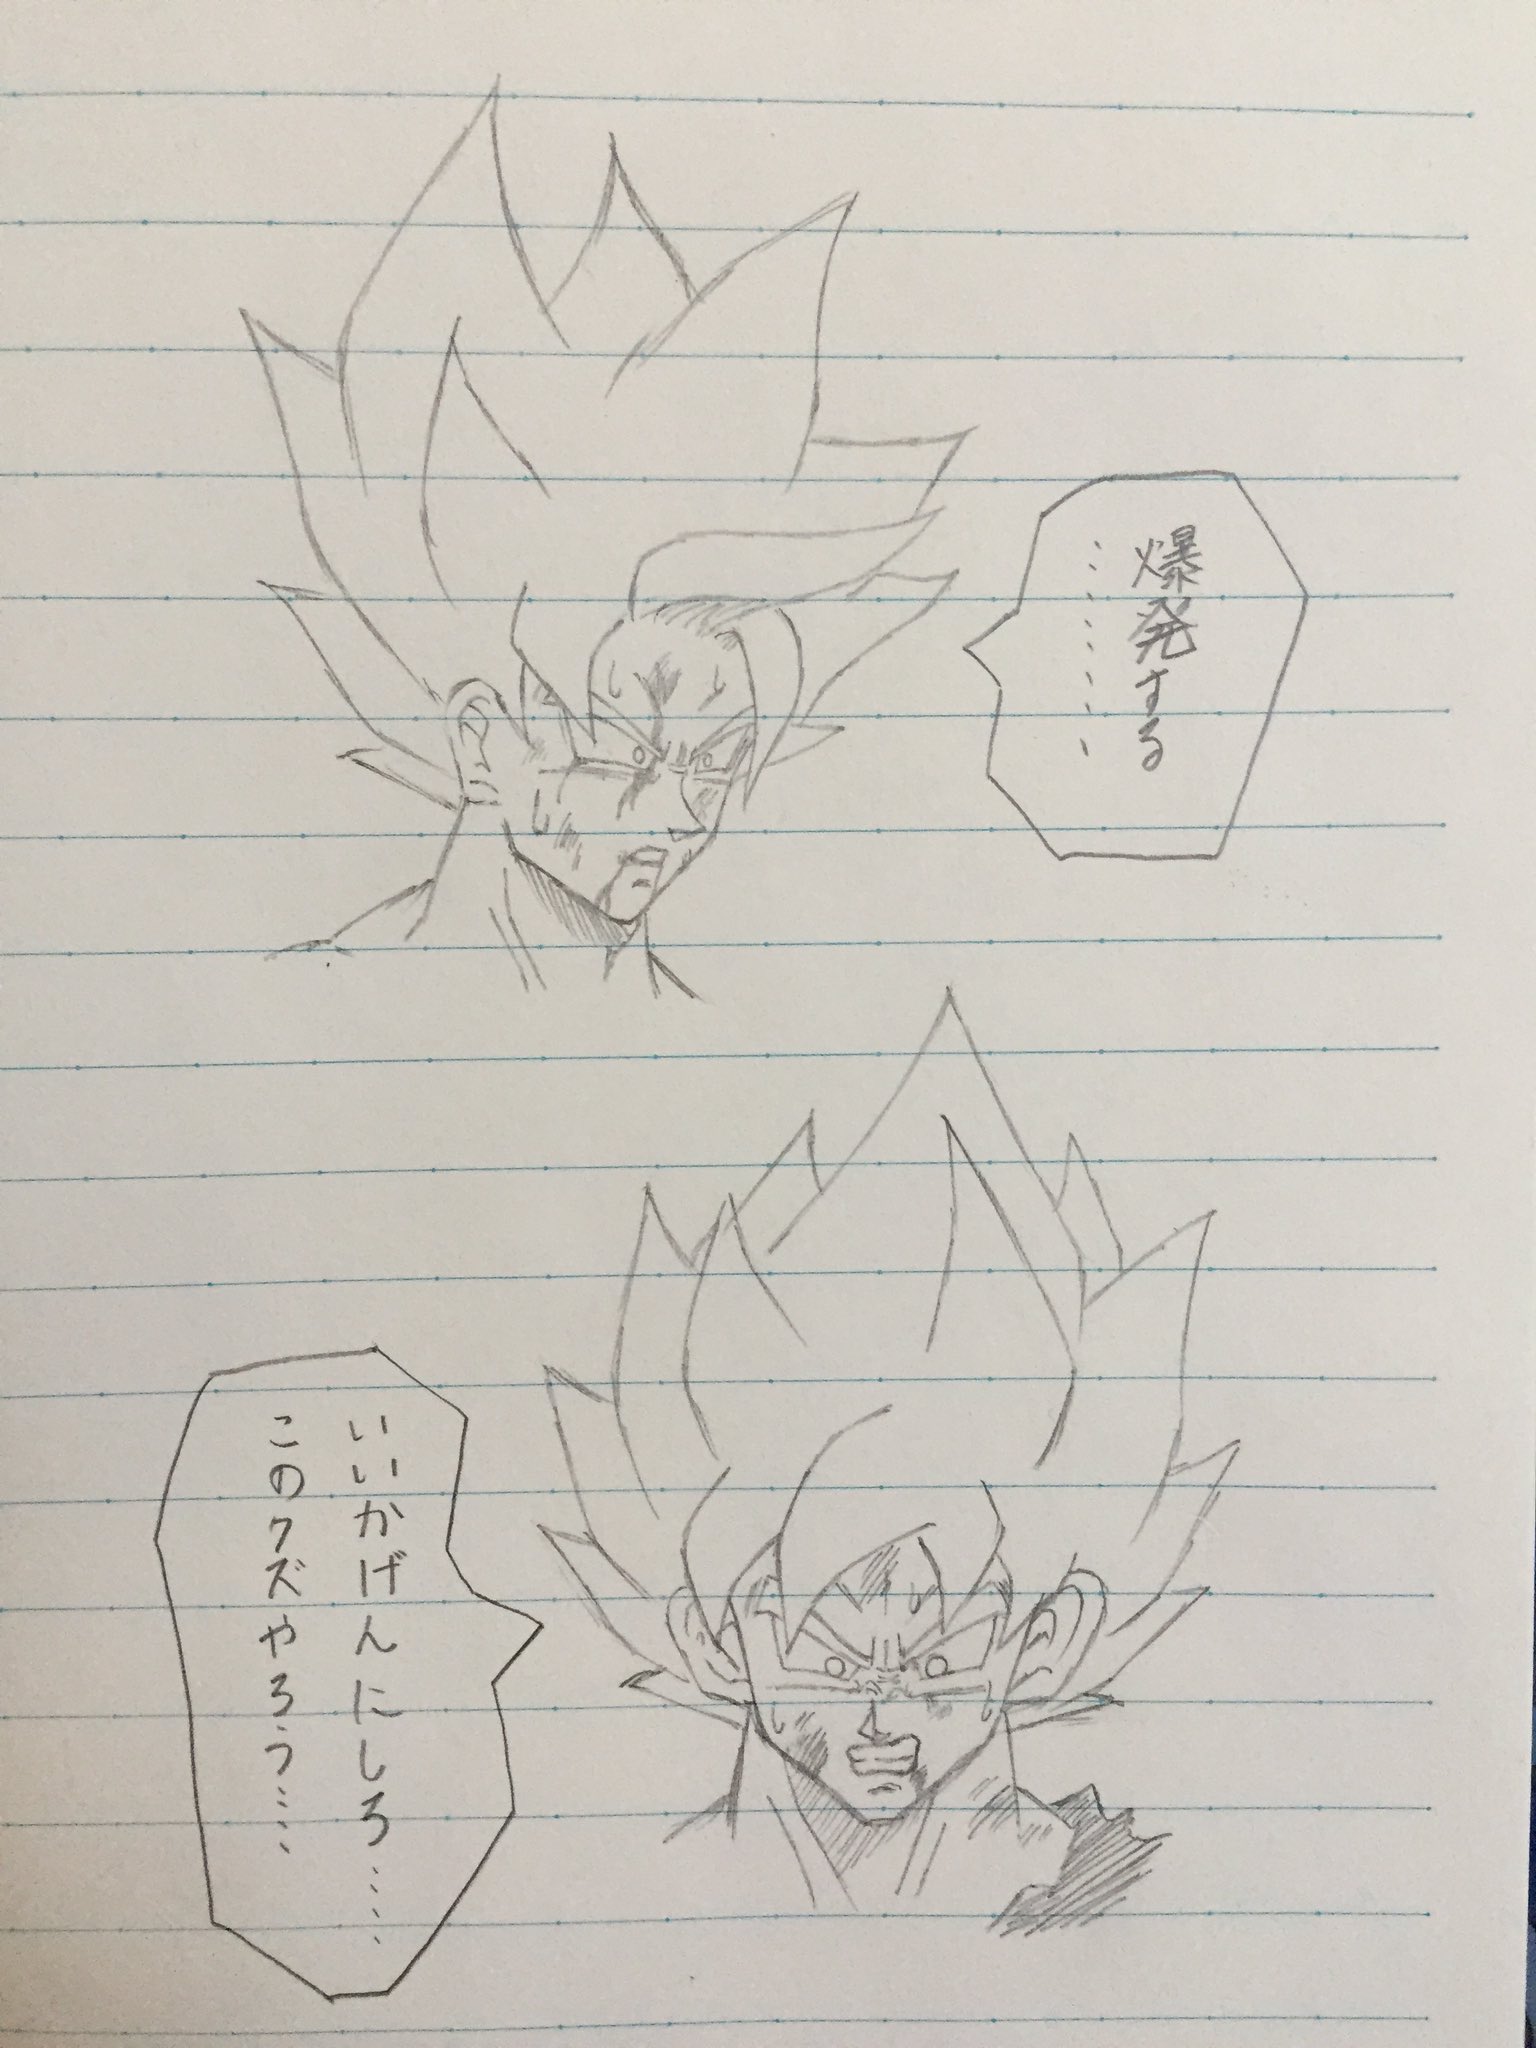 爆発する
………
いいかげんにしろ……
このクズやろう……